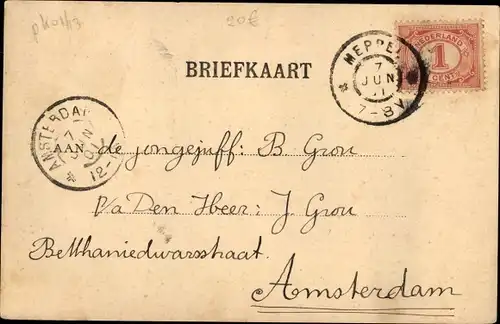 pk01/13 20€
NEDERLAND
1
CENT
MEPPEL
7
JUN
01
7-8V
BRIEFKAART
AMSTERDAM
7
JUN
01
12-
AAN de jongejuff: B Grou
p/a Den Heer: J Grou
Bethaniedwarsstraat
Amsterdam